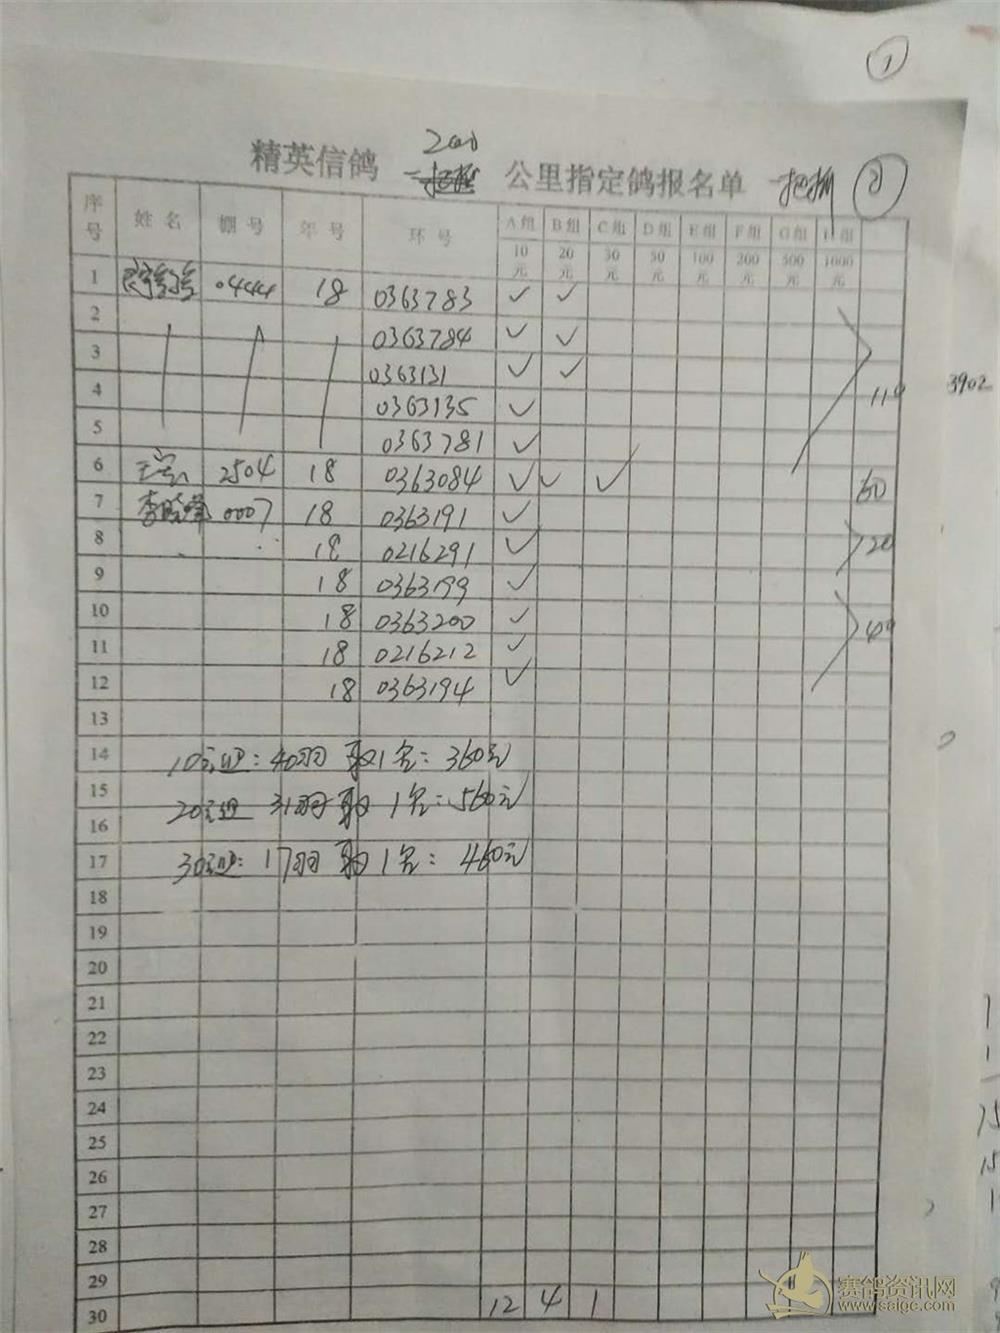 1
精英信鸽 200 公里指定鸽报名单 一把抓 2
序号 姓名 棚号 年号 环号 A组 B组 C组 D组 E组 F组 G组 H组
10元 20元 30元 50元 100元 200元 500元 1000元
1 0444 18 0363783 ✓ ✓
2 0363784 ✓ ✓
3 0363131 ✓ ✓
4 0363135 ✓
5 0363781 ✓
110
3902
6 2504 18 0363084 ✓ ✓ ✓ 60
7 李晓峰 0007 18 0363191 ✓
8 18 0216291 ✓ 20
9 18 0363199 ✓
10 18 0363200 ✓
11 18 0216212 ✓ 40
12 18 0363194 ✓
13
14 10元组:40羽 取1名:360元
15 20元组 31羽 取1名:560元
16
17 30元组:17羽 取1名:460元
18
19
20
21
22
23
24
25
26
27
28
29
30 12 4 1
赛鸽资讯网
www.saigc.com